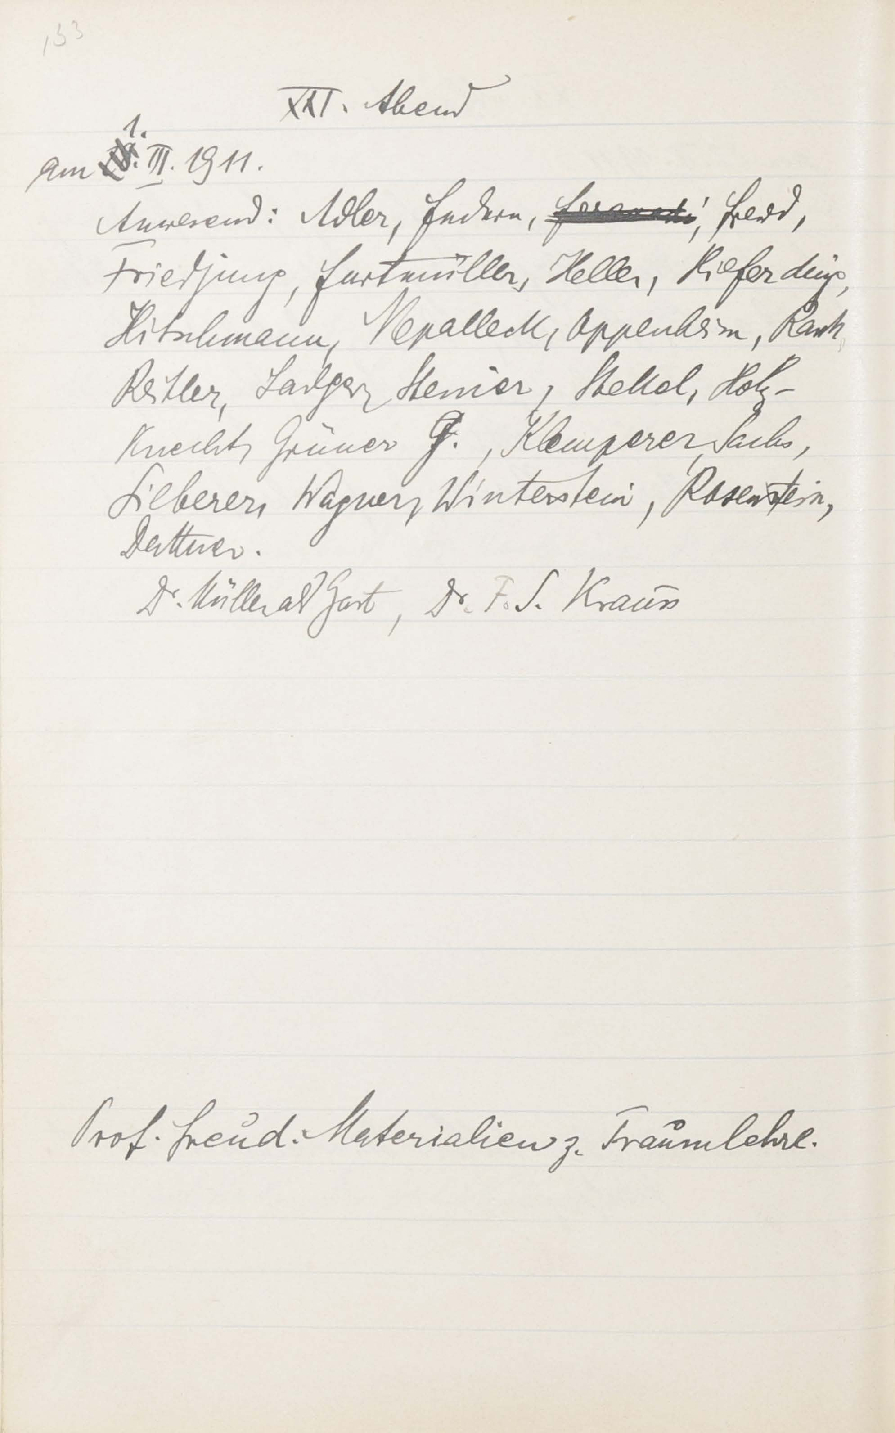 133
XXI. Abend
1.
am III. 1911.
Anwesend: Adler, Federn, Freud,
Friedjung, Furtmüller, Heller, Hilferding,
Hitschmann, Nepalleck, Oppenheim, Rank,
Reitler, Sadger, Steiner, Stekel, Holz-
Knecht, Grüner G., Klemperer, Sachs,
Silberer, Wagner, Winterstein, Rosenstein,
Dattner.
Dr. Müller als Gast, Dr. F. S. Krauss
Prof. Freud: Materialien z. Traumlehre.